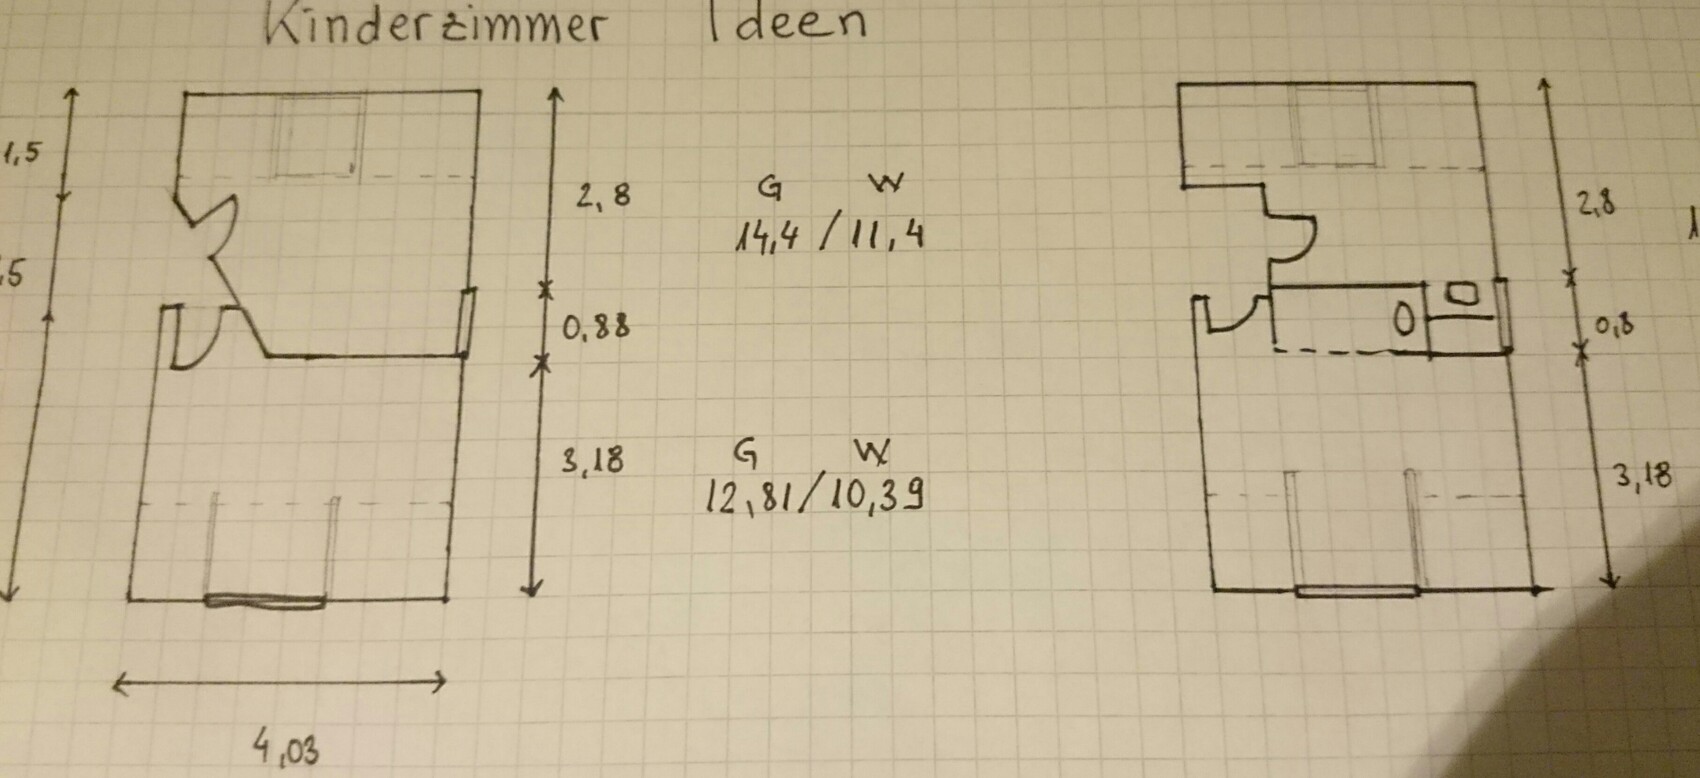 Kinderzimmer Ideen
1,5
2,8
G W
14,4 / 11,4
2,8
,5
0,88
0,8
3,18
G W
12,81 / 10,39
3,18
4,03